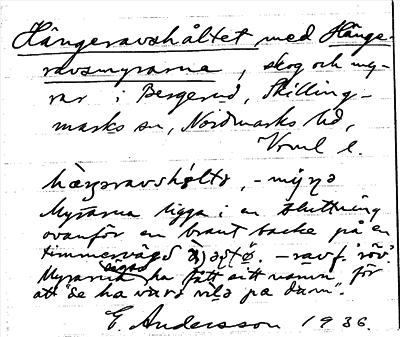 Hängeravshåltet med Hänge-
ravsmyrarna, skog och my-
rar i Bergerud, Skilling-
marks sn, Nordmarks hd,
Vrml l.
Myrarna ligga i en sluttning
ovanför en brant backe på en
timmerväg
Myrarna sägas ha fått sitt namn för
att "de ha vara
E. Andersson 1936.